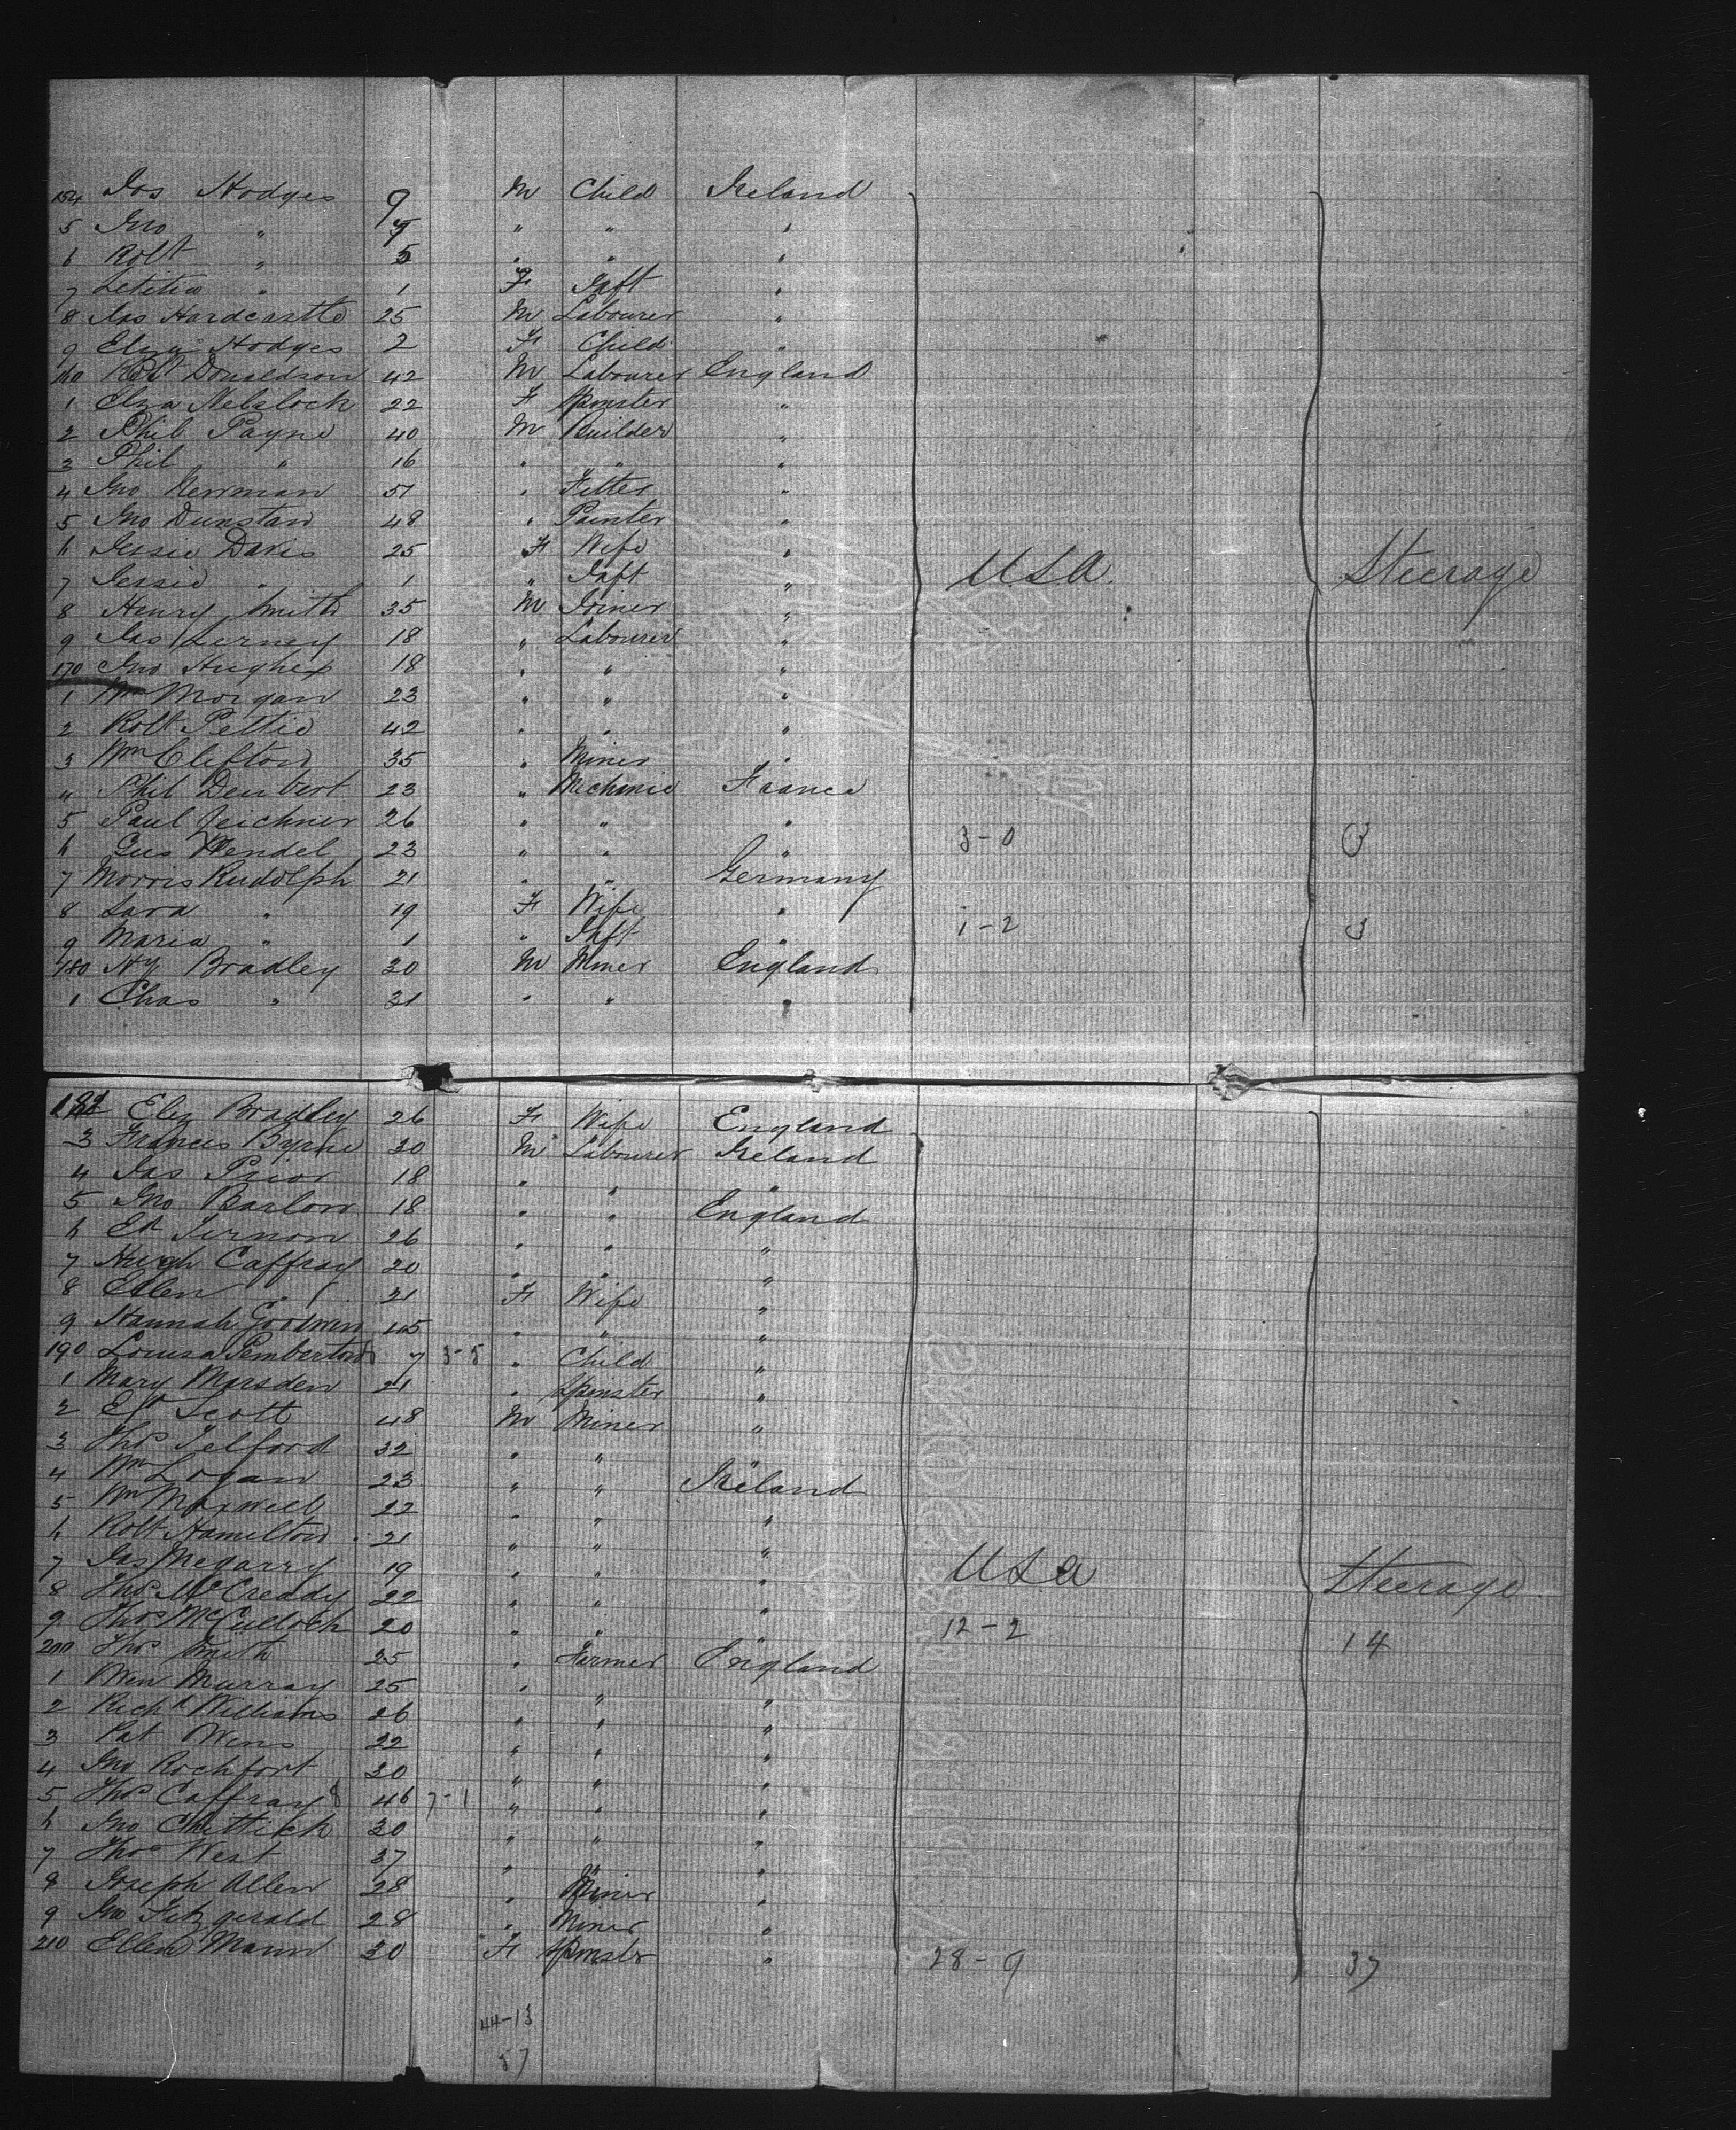 154 Jos Hodges 9 M Child Ireland
5 Jno " 7 " " "
6 Robt " 5 " " "
7 Letitia " 1 F Inft "
8 Jas Hardcastle 25 M Labourer "
9 Eliza Hodges 2 F Child "
160 Robt Donaldson 42 M Labourer England
1 Eliza 22 F Spinster "
2 Phil Payne 40 M Builder "
3 Phil " 16 " " "
4 Jno Newman 51 " Fitter "
5 Jno Dunstan 48 " Painter "
6 Jessie Davis 25 F Wife "
7 Jessie " 1 " Inft " USA Steerage
8 Henry Smith 35 M Joiner "
9 Jas 18 " Labourer "
170 Jno Hughes 18 " " "
1 Wm Morgan 23 " " "
2 Robt Pettie 42 " " "
3 Wm Clifton 35 " Miner "
" Phil Deubert 23 " Mechanic France
5 Paul 26 " " "
6 Gus Wendel 23 " " " 3-0 3
7 Morris Rudolph 21 " " Germany
8 Sara " 19 F Wife " 1-2 3
9 Maria " 1 " Inft "
180 Hy Bradley 30 M Miner England
1 Chas " 31 " " "
182 Eliz Bradley 26 F Wife England
3 Francis Byrne 30 M Labourer Ireland
4 Jas Prior 18 " " "
5 Jno Barlow 18 " " England
6 Ed 26 " " "
7 Hugh Caffray 20 " " "
8 Ellen " 21 F Wife "
9 Hannah Goodwin 45 " " "
190 Louisa Pemberton 7 3-5 " Child "
1 Mary Marsden 21 " Spinster "
2 Ed Scott 48 M Miner "
3 Thos Telford 32 " "
4 Wm Logan 23 " " Ireland
5 Wm Maxwell 22 " " "
6 Robt Hamilton 21 " " "
7 Jas Megarry 19 " " " USA Steerage
8 Thos McCreddy 22 " " "
9 Thos McCulloch 20 " " " 12-2 14
200 Thos Smith 25 " Farmer England
1 Wm Murray 25 " " "
2 Richd Williams 26 " " "
3 Pat 22 " " "
4 Jno Rochfort 30 " " "
5 Thos Caffray 46 7-1 " " "
6 Jno Chittick 30 " " "
7 Thos West 37 " " "
8 Joseph Allen 28 " Miner "
9 Jno Fitzgerald 28 " Miner "
210 Ellen Mann 30 F Spinstr " 28-9 37
44-13
57